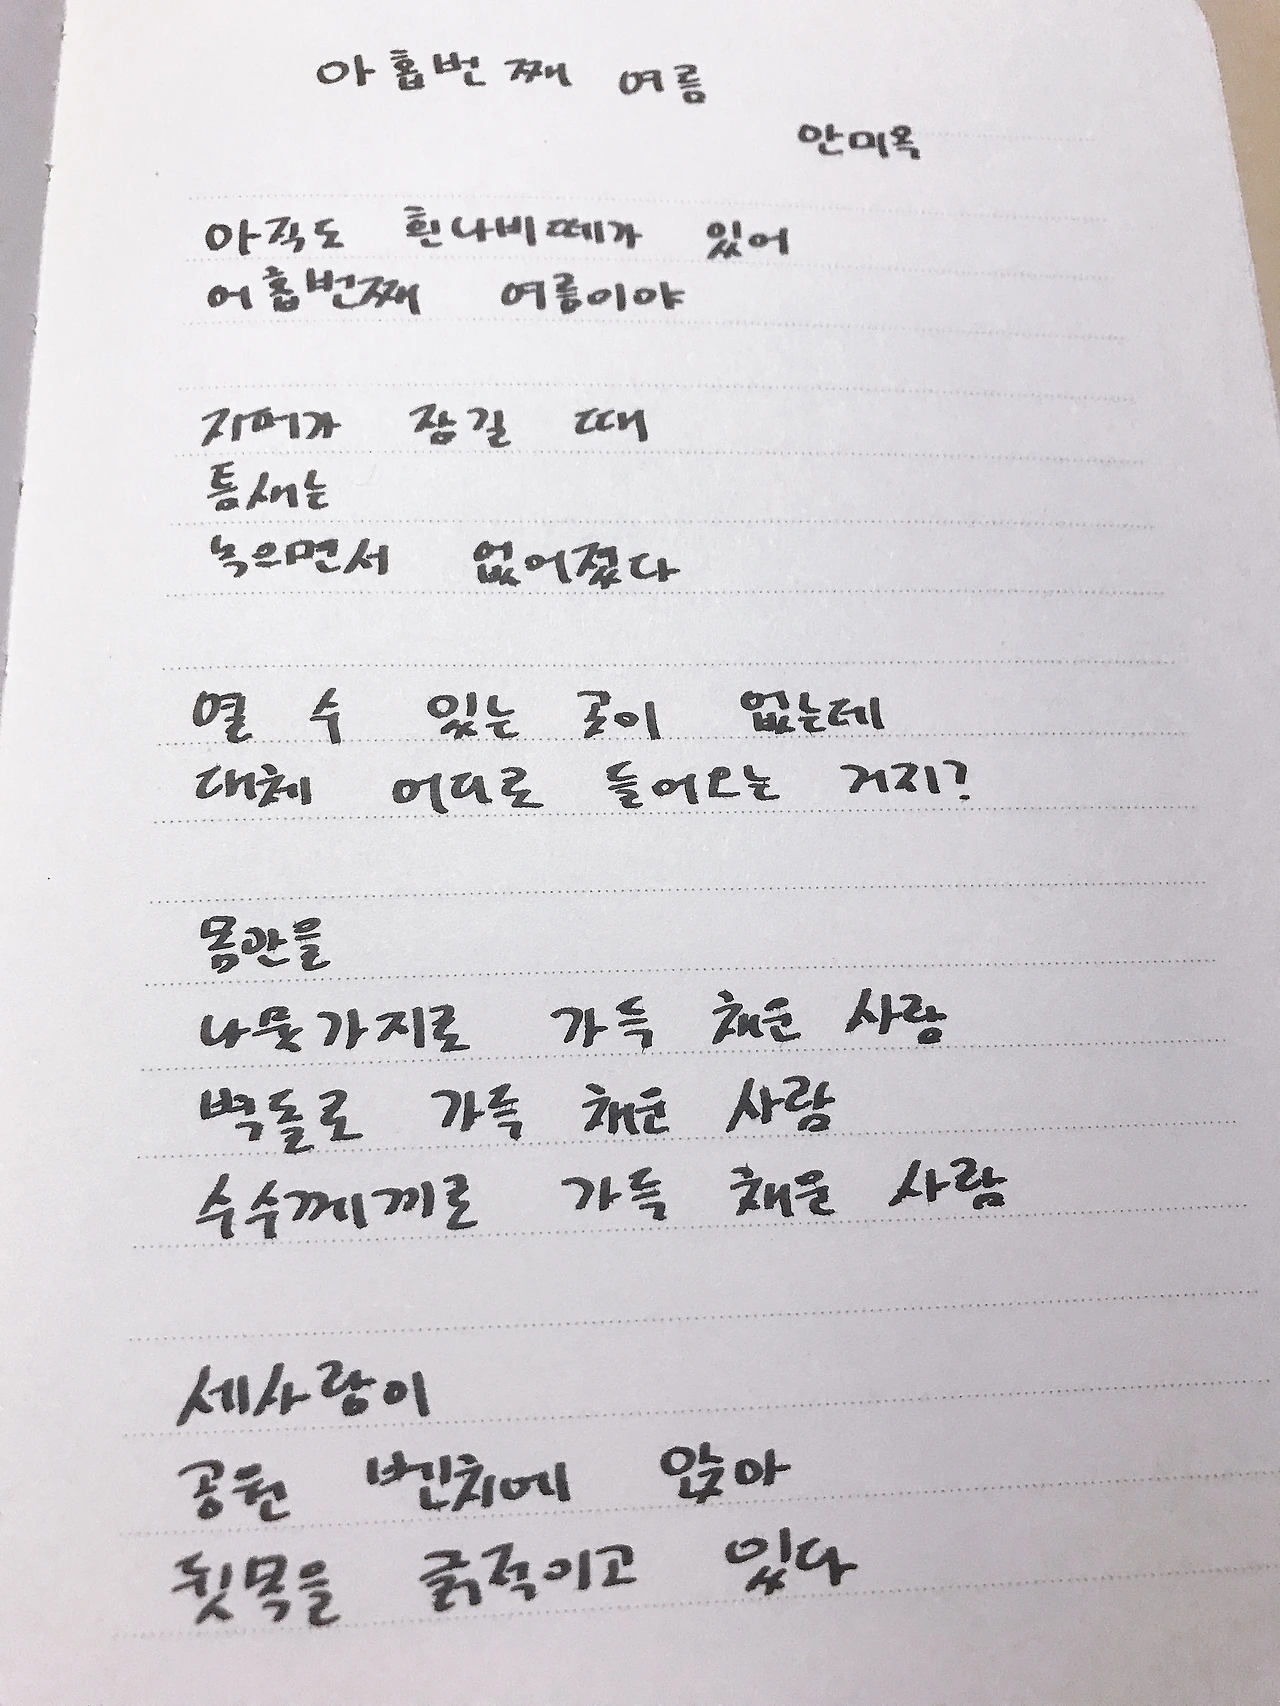 아홉번째 여름
안미옥
아직도 흰나비떼가 있어
어홉번째 여름이야
지퍼가 잠길 때
틈새는
녹으면서 없어졌다
열 수 있는 곳이 없는데
대체 어디로 들어오는 거지?
몸안을
나뭇가지로 가득 채운 사람
벽돌로 가득 채운 사람
수수께끼로 가득 채운 사람
세사람이
공원 벤치에 앉아
뒷목을 긁적이고 있다